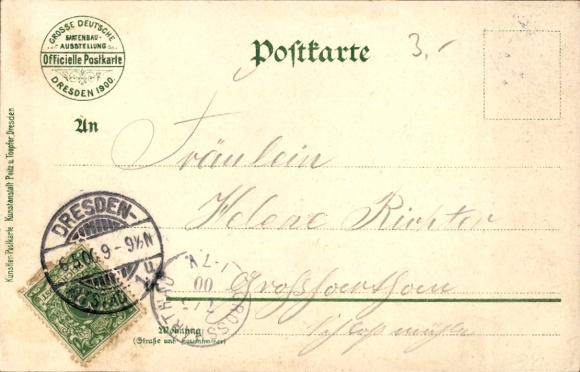 GROSSE DEUTSCHE
GARTENBAU-
AUSSTELLUNG
Officielle Postkarte
DRESDEN 1900.
Postkarte
3,-
An
Fräulein
Helene Richter
DRESDEN-
9-9½N
ALTSTADT
Wohnung
(Straße und Hausnummer)
Schloßmühle
Künstler-Postkarte Kunstanstalt Dresden